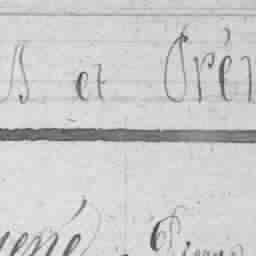 s et Prén
ené Pierre